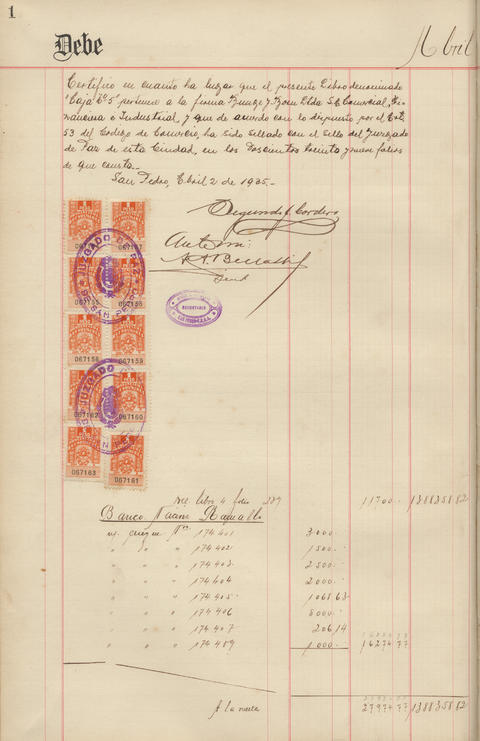 1
Debe
Abril
Certifico en cuanto ha lugar que el presente Libro denominado
"Caja Nº 5" pertenece a la firma Bunge y Born Ltda S.A. Comercial, Fi-
nanciera e Industrial, y que de acuerdo con lo dispuesto por el Art.
53 del Codigo de Comercio, ha sido sellado con el sello del Juzgado
de Paz de esta Ciudad, en los Doscientos treinta y nueve folios
de que consta.-
San Pedro, Abril 2 de 1935.-
Segundo Cordero
Ante mi:
JUZGADO DE PAZ
SAN PEDRO
SECRETARIO
067158
067159
067162
067160
067163
067161
Del libro 4 folio 239 11700.- 13883588 2
Banco Nacion Ramallo
n/ cheque Nº 174401 3.000.-
" " " 174402 1500.-
" " " 174403 2500.-
" " " 174404 2000.-
" " " 174405 1068 63
" " " 174406 5000.-
" " " 174407 206 14
" " " 174489 1.000.- 16274 77
A la vuelta 27974 77 13883588 2